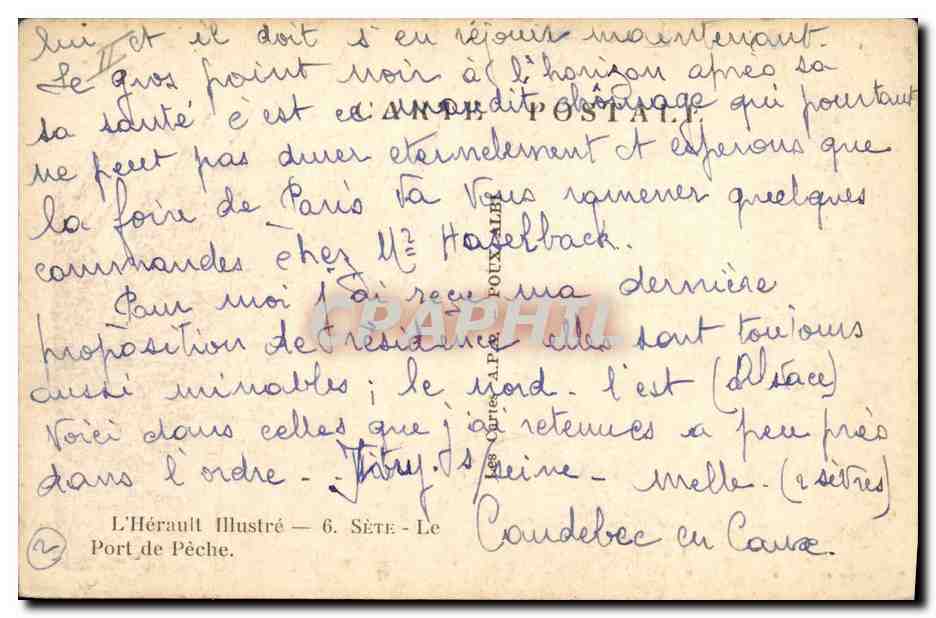 lui et il doit s'en réjouir maintenant.
II
Le gros point noir à l'horizon après sa
sa santé c'est ce maudit chômage qui pourtant
CARTE POSTALE
ne peut pas durer eternellement et esperons que
la foire de Paris va vous ramener quelques
commandes chez Mr Haselback.
Pour moi j'ai reçu ma dernière
proposition de résidence elles sont toujours
aussi minables ; le nord - l'est (Alsace)
Voici dans celles que j'ai retenues a peu près
dans l'ordre - Vitry s/seine - Melle - (2 sèvres)
Caudebec en Caux.
Les Cartes A.P.A. POUX, ALBI
L'Hérault Illustré — 6. SÈTE - Le
Port de Pêche.
2
CPAPHIL